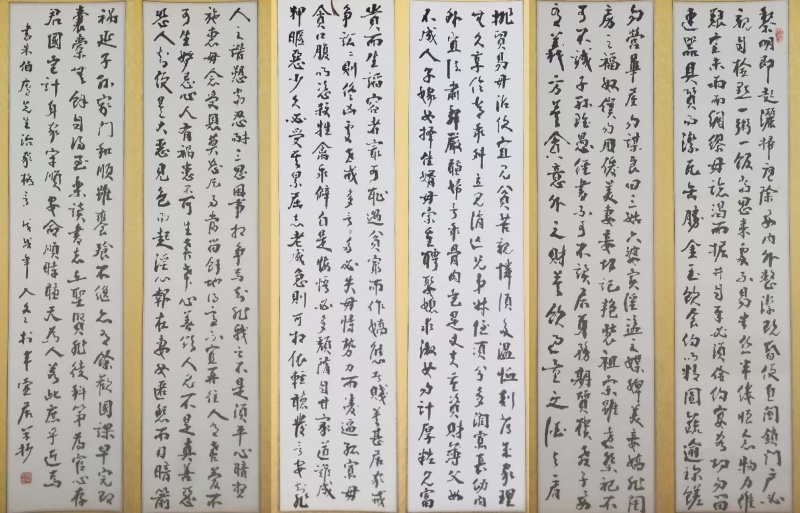 黎明即起灑掃庭除要內外整潔既昏便息關鎖門戶必
親自檢點一粥一飯當思來處不易半絲半縷恒念物力維
艱宜未雨而綢繆毋臨渴而掘井自奉必須儉約宴客切勿留
連器具質而潔瓦缶勝金玉飲食約而精園蔬逾珍饈
勿營華屋勿謀良田三姑六婆實淫盜之媒婢美妾嬌非閨
房之福奴僕勿用俊美妻妾切記艷裝祖宗雖遠祭祀不
可不誠子孫雖愚經書不可不讀居身務期質樸教子要
有義方莫貪意外之財莫飲過量之酒與肩
挑貿易毋沾便宜見貧苦親鄰須多溫恤刻薄成家理
無久享倫常乖舛立見消亡兄弟叔侄須分多潤寡長幼內
外宜法肅辭嚴聽婦言乖骨肉豈是丈夫重資財薄父母
不成人子嫁女擇佳婿毋索重聘娶媳求淑女勿計厚奩見富
貴而生諂容者最可恥遇貧窮而作嬌態者賤莫甚居家戒
爭訟訟則終凶處世戒多言言多必失毋恃勢力而凌逼孤寡毋
貪口腹而恣殺牲禽乖僻自是悔悟必多頹惰自甘家道難成
狎暱惡少久必受其累屈志老成急則可相依輕聽發言安知非
人之譖愬當忍耐三思因事相爭焉知非我之不是須平心暗想
施惠毋念受恩莫忘凡事當留餘地得意不宜再往人有喜慶不
可生妒忌心人有禍患不可生喜幸心善欲人見不是真善惡
恐人知便是大惡見色而起淫心報在妻女匿怨而用暗箭
禍延子孫家門和順雖饔飧不繼亦有餘歡國課早完即
囊橐無餘自得至樂讀書志在聖賢非徒科第為官心存
君國豈計身家順安命順時聽天為人若此庶乎近焉
書朱伯廬先生治家格言 戊戌年入冬於半室居抄